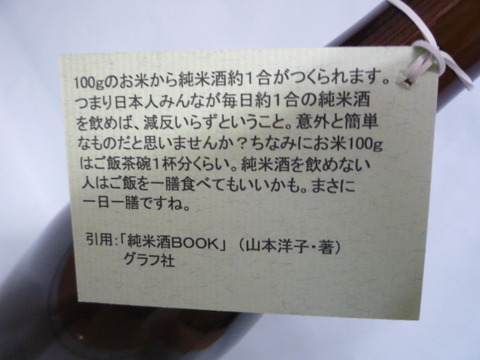 100gのお米から純米酒約1合がつくられます。
つまり日本人みんなが毎日約1合の純米酒
を飲めば、減反いらずということ。意外と簡単
なものだと思いませんか？ちなみにお米100g
はご飯茶碗1杯分くらい。純米酒を飲めない
人はご飯を一膳食べてもいいかも。まさに
一日一膳ですね。
引用：「純米酒BOOK」（山本洋子・著）
グラフ社